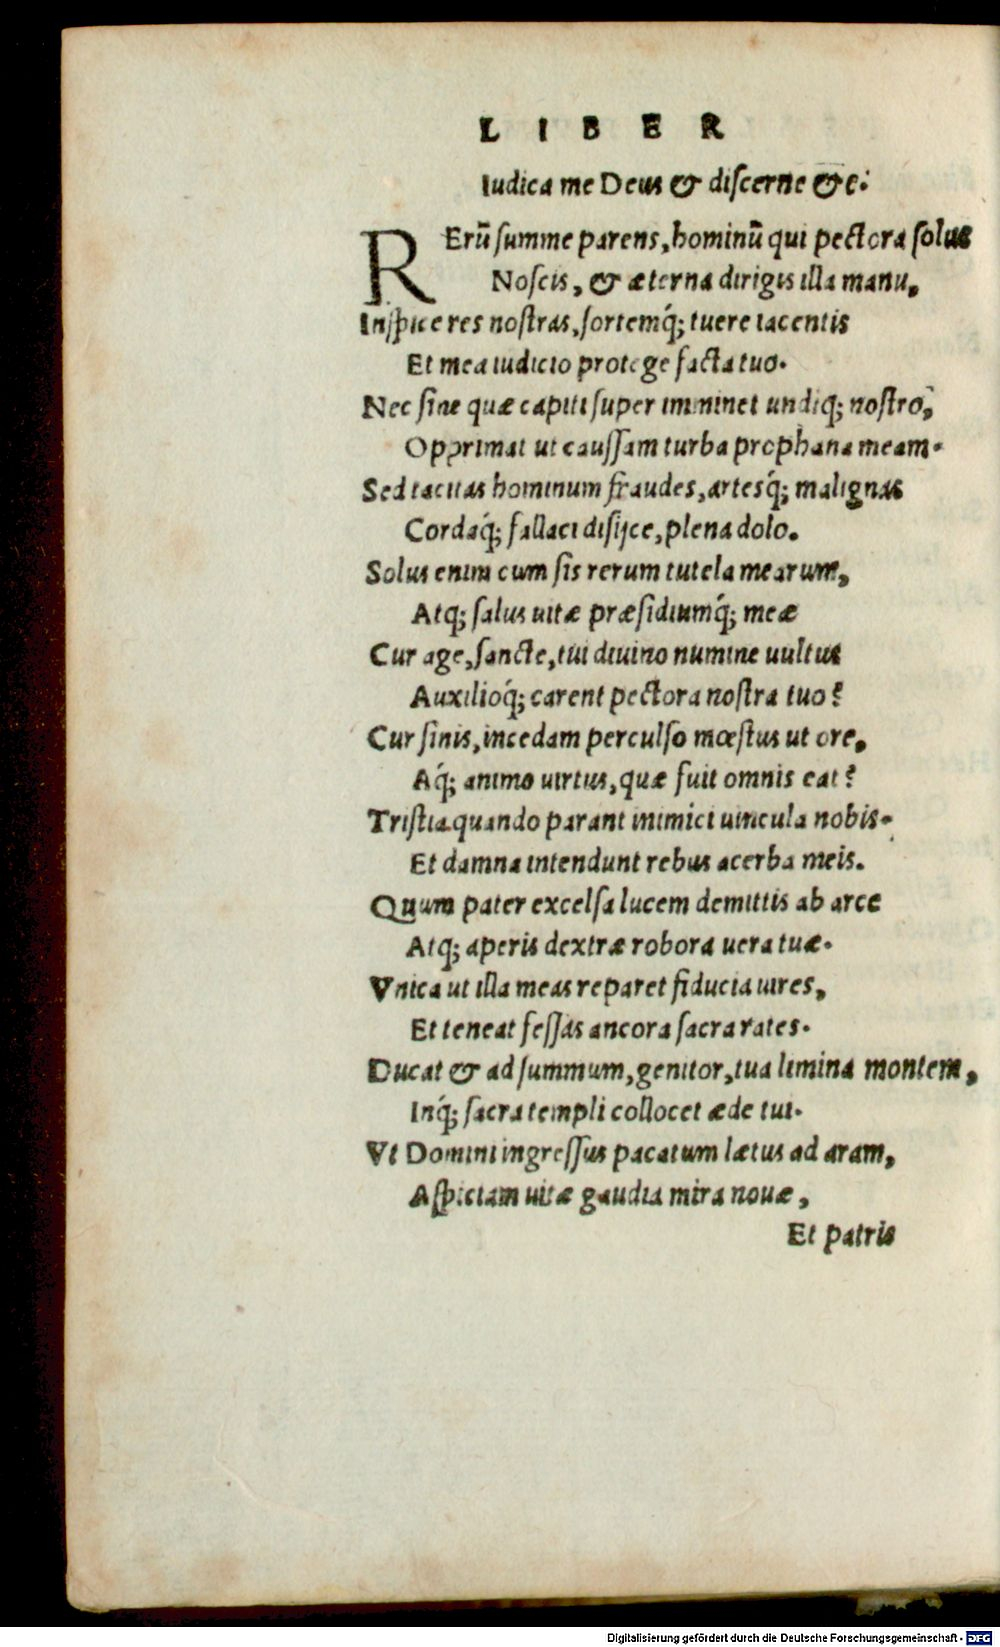 LIBER
Iudica me Deus & discerne &c.
RErũ summe parens, hominũ qui pectora solus
Noscis, & æterna dirigis illa manu,
Inspice res nostras, sortemq́; tuere iacentis
Et mea iudicio protege facta tuo.
Nec sine quæ capiti super imminet undiq; nostro,
Opprimat ut caussam turba prophana meam.
Sed tacitas hominum fraudes, artesq́; malignas
Cordaq́; fallaci disijce, plena dolo.
Solus enim cum sis rerum tutela mearum,
Atq; salus uitæ præsidiumq́; meæ
Cur age, sancte, tui diuino numine uultus
Auxilioq́; carent pectora nostra tuo?
Cur sinis, incedam perculso mœstus ut ore,
Aq́; animo uirtus, quæ fuit omnis eat?
Tristia quando parant inimici uincula nobis.
Et damna intendunt rebus acerba meis.
Quum pater excelsa lucem demittis ab arce
Atq; aperis dextræ robora uera tuæ.
Vnica ut illa meas reparet fiducia uires,
Et teneat fessas ancora sacra rates.
Ducat & ad summum, genitor, tua limina montem,
Inq́; sacra templi collocet æde tui.
Vt Domini ingressus pacatum lætus ad aram,
Aspiciam uitæ gaudia mira nouæ,
Et patris
Digitalisierung gefördert durch die Deutsche Forschungsgemeinschaft - DFG